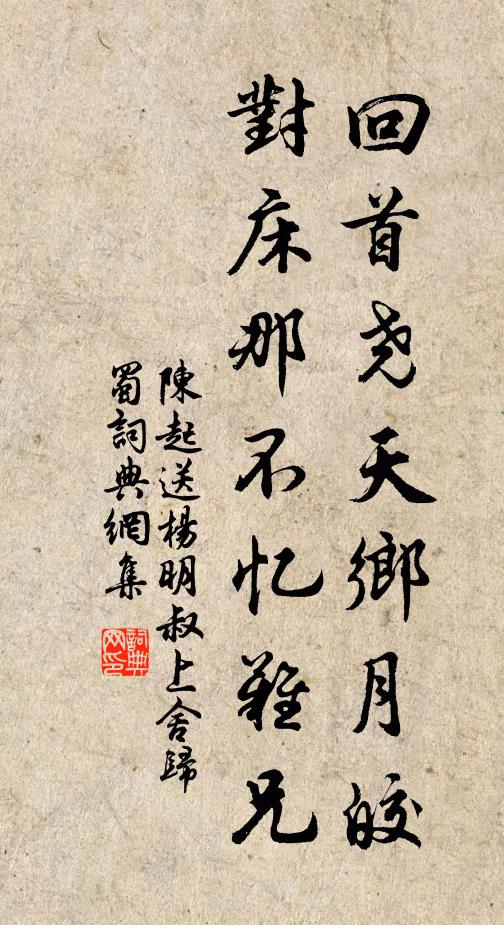 回首尧天鄉月皎
對床那不忆難兄
陳起送楊明叔上舍歸
蜀詞典網集
詞典网印